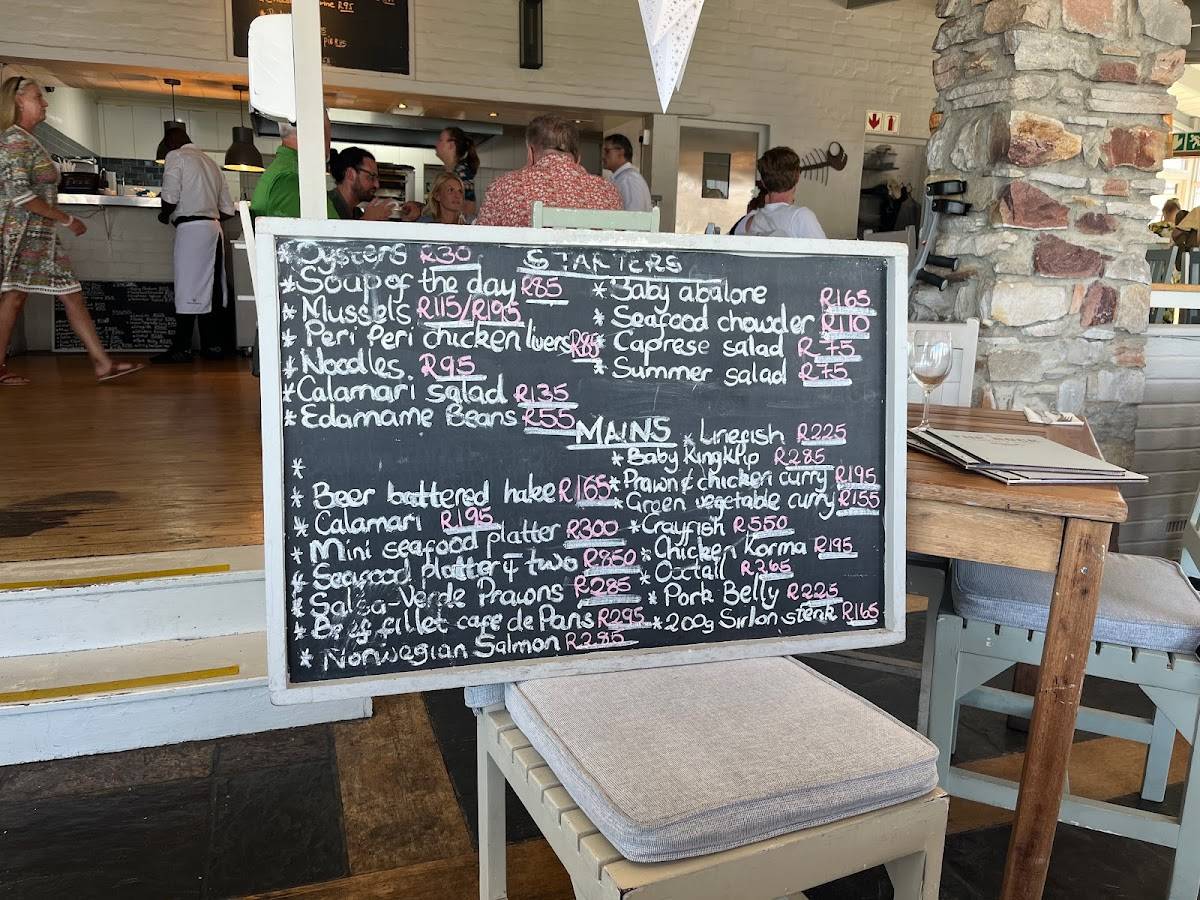 R95
STARTERS
* Oysters R30
* Soup of the day R85
* Mussels R115/R195
* Peri Peri chicken livers R85
* Noodles R95
* Calamari salad R135
* Edamame Beans R55
* Baby abalone R165
* Seafood chowder R110
* Caprese salad R75
* Summer salad R75
MAINS
*
*
* Beer battered hake R165
* Calamari R195
* Mini seafood platter R300
* Seafood platter 4 two R850
* Salsa-Verde Prawns R285
* Beef fillet cafe de Paris R295
* Norwegian Salmon R285
* Linefish R225
* Baby Kingklip R285
* Prawn & chicken curry R195
* Green vegetable curry R155
* Crayfish R550
* Chicken Korma R195
* Oxtail R265
* Pork Belly R225
* 200g Sirloin steak R165